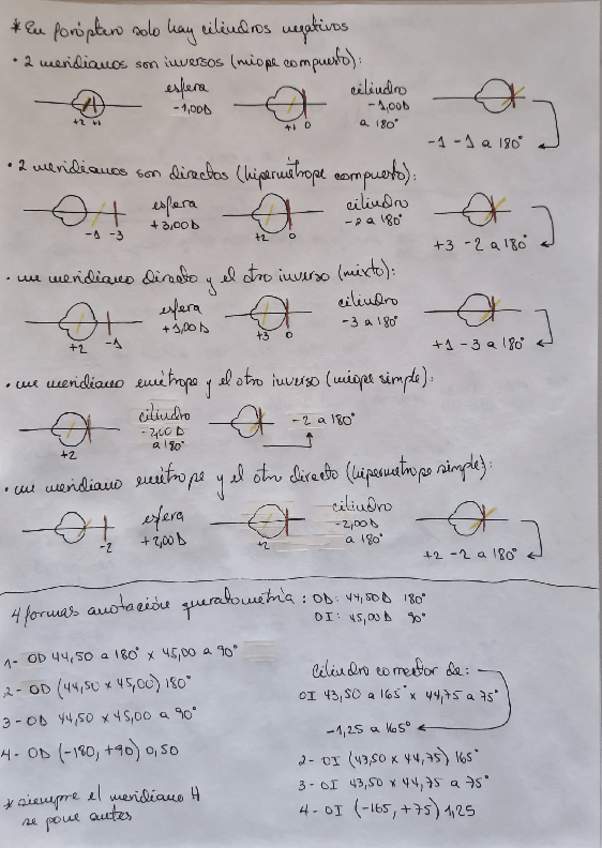 * En foróptero solo hay cilindros negativos
• 2 meridianos son inversos (miope compuesto):
esfera
-1,00D
cilindro
-1,00D
a 180°
+2 +1
+1 0
-1 -1 a 180°
• 2 meridianos son directos (hipermétrope compuesto):
esfera
+3,00D
cilindro
-2 a 180°
-1 -3
+2 0
+3 -2 a 180°
• un meridiano directo y el otro inverso (mixto):
esfera
+1,00D
cilindro
-3 a 180°
+2 -1
+3 0
+1 -3 a 180°
• un meridiano emétrope y el otro inverso (miope simple):
cilindro
-2,00D
a 180°
-2 a 180°
+2
• un meridiano emétrope y el otro directo (hipermetrope simple):
esfera
+2,00D
cilindro
-2,00D
a 180°
-2
+2
+2 -2 a 180°
4 formas anotación queratometría: OD: 44,50D 180°
OI: 45,00D 90°
1- OD 44,50 a 180° x 45,00 a 90°
2- OD (44,50 x 45,00) 180°
3- OD 44,50 x 45,00 a 90°
4- OD (-180, +90) 0,50
* siempre el meridiano H
se pone antes
Cilindro corrector de:
OI 43,50 a 165° x 44,75 a 75°
-1,25 a 165°
2- OI (43,50 x 44,75) 165°
3- OI 43,50 x 44,75 a 75°
4- OI (-165, +75) 1,25